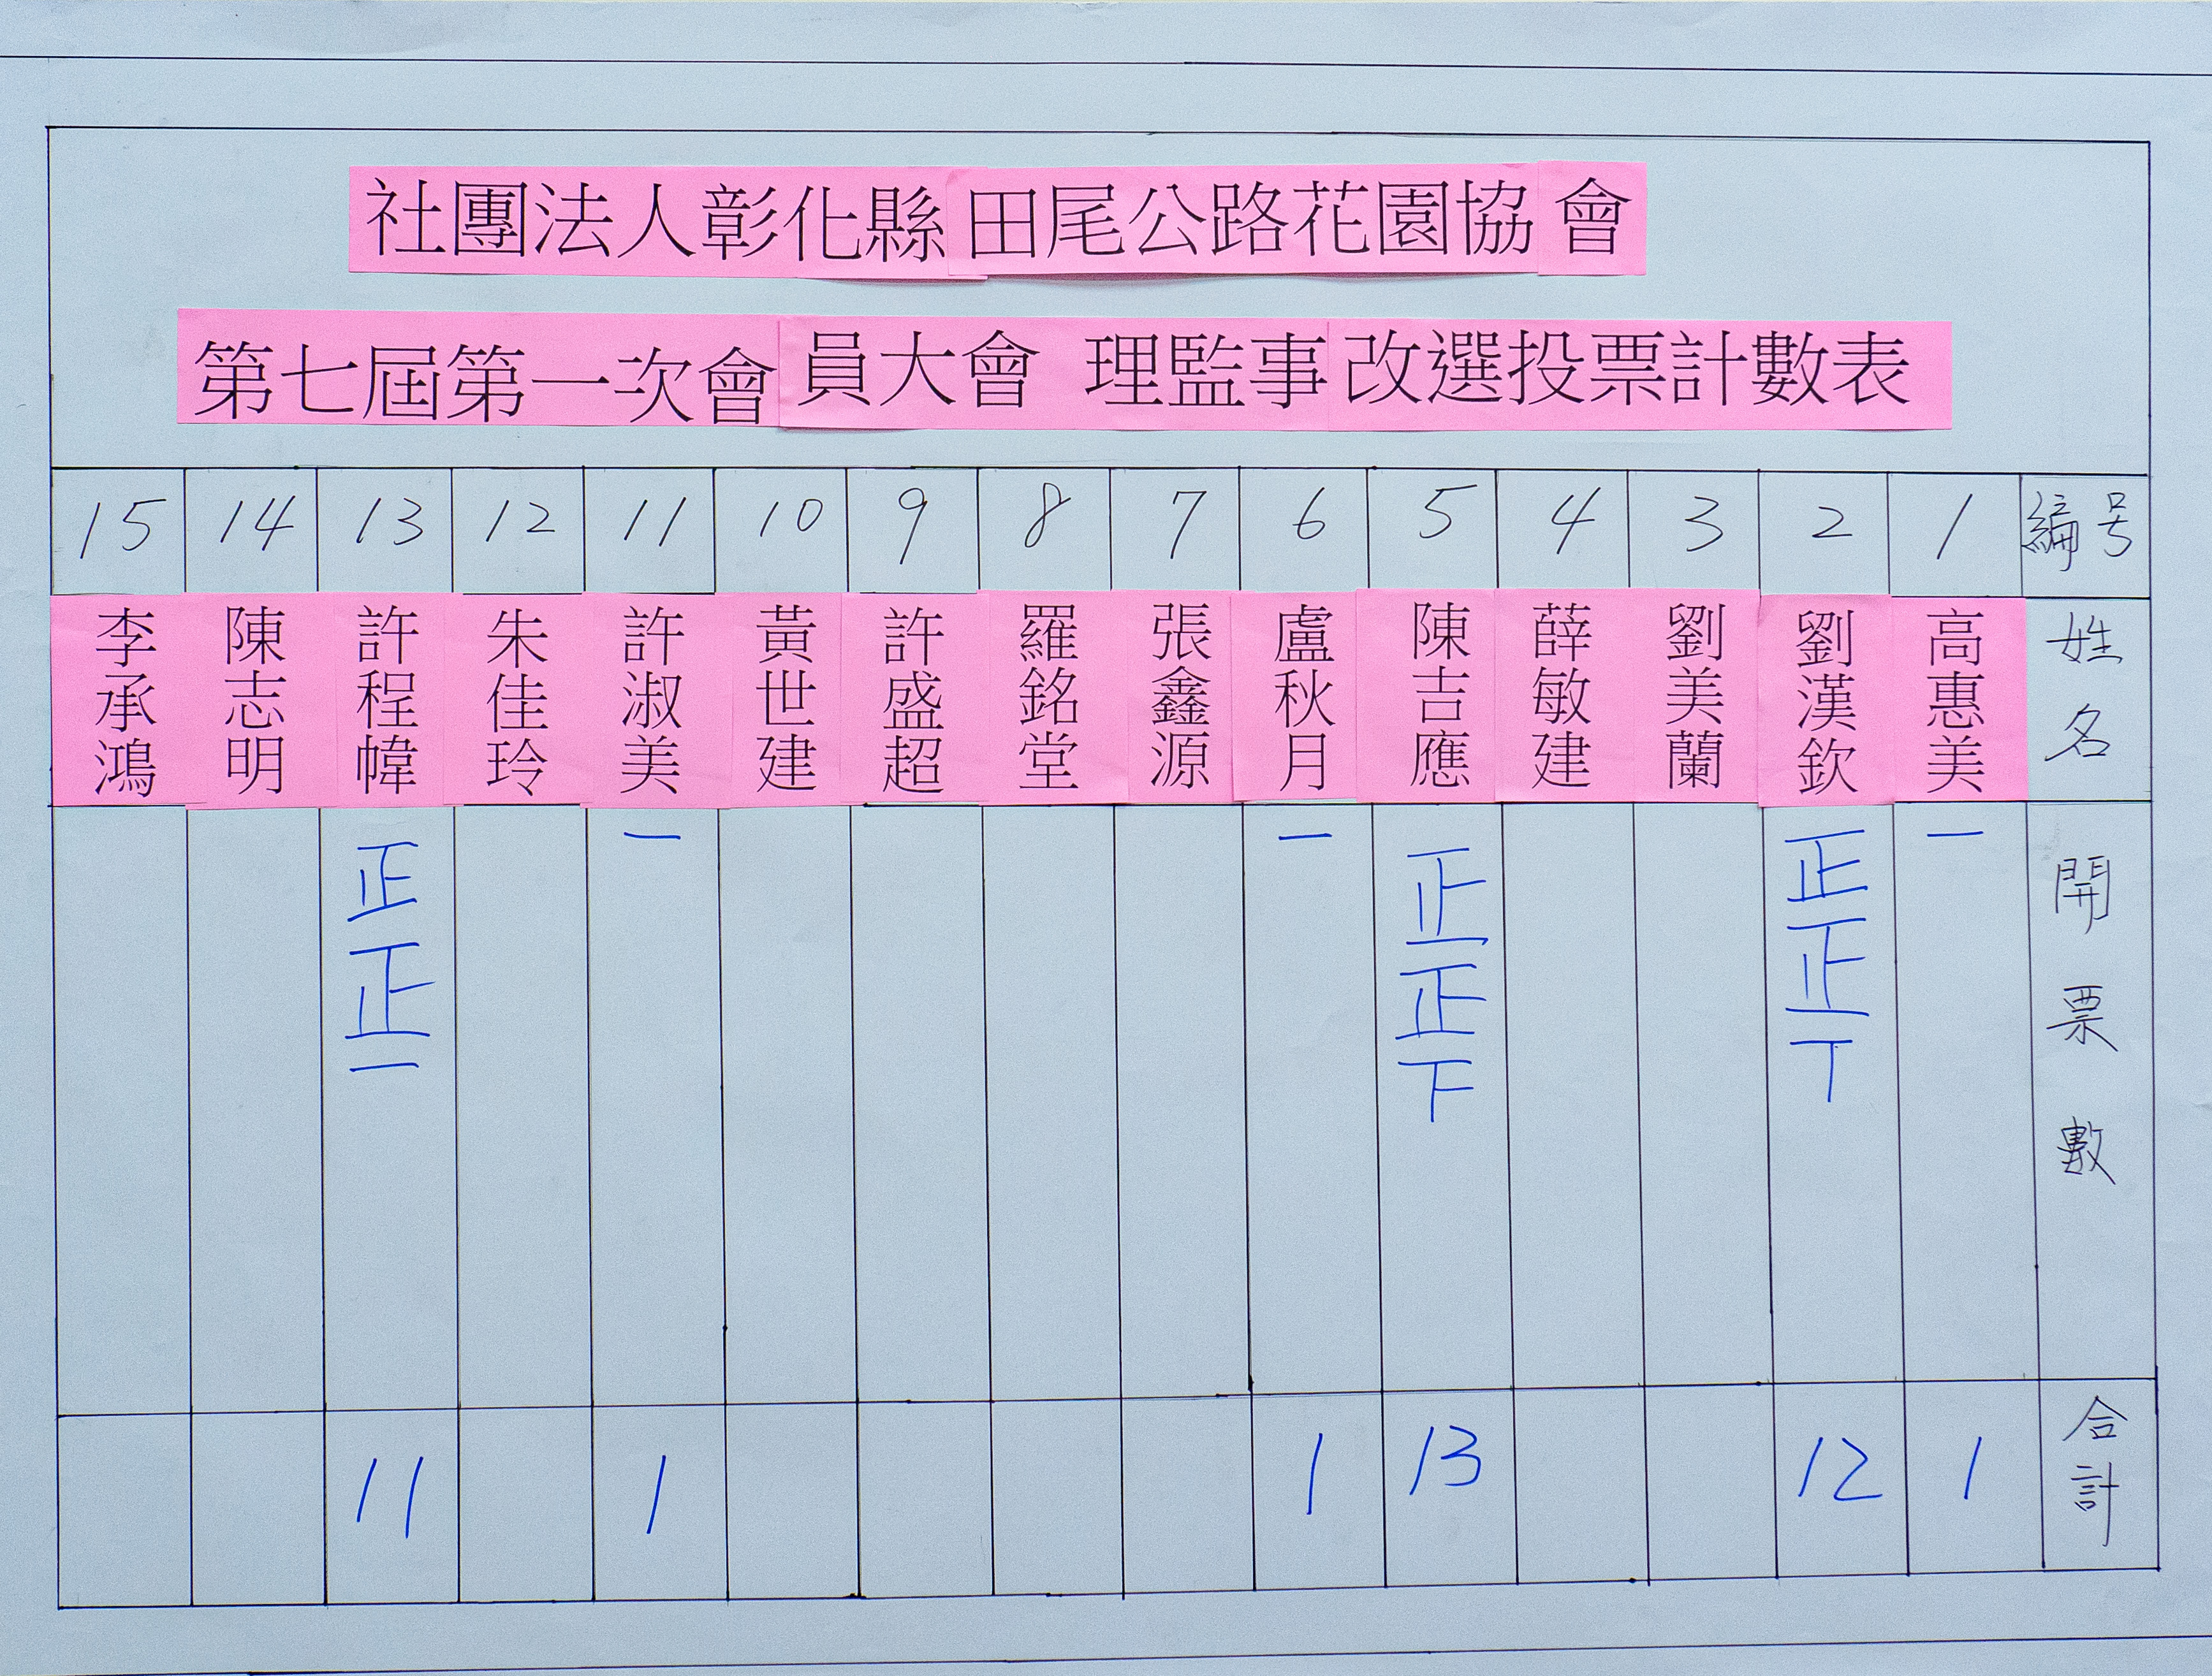 社團法人彰化縣田尾公路花園協會
第七屆第一次會員大會 理監事改選投票計數表
編号 1 2 3 4 5 6 7 8 9 10 11 12 13 14 15
姓名 高惠美 劉漢欽 劉美蘭 薛敏建 陳吉應 盧秋月 張鑫源 羅銘堂 許盛超 黃世建 許淑美 朱佳玲 許程幃 陳志明 李承鴻
開票數 一 正正丅 正正下 一 一 正正一
合計 1 12 13 1 1 11